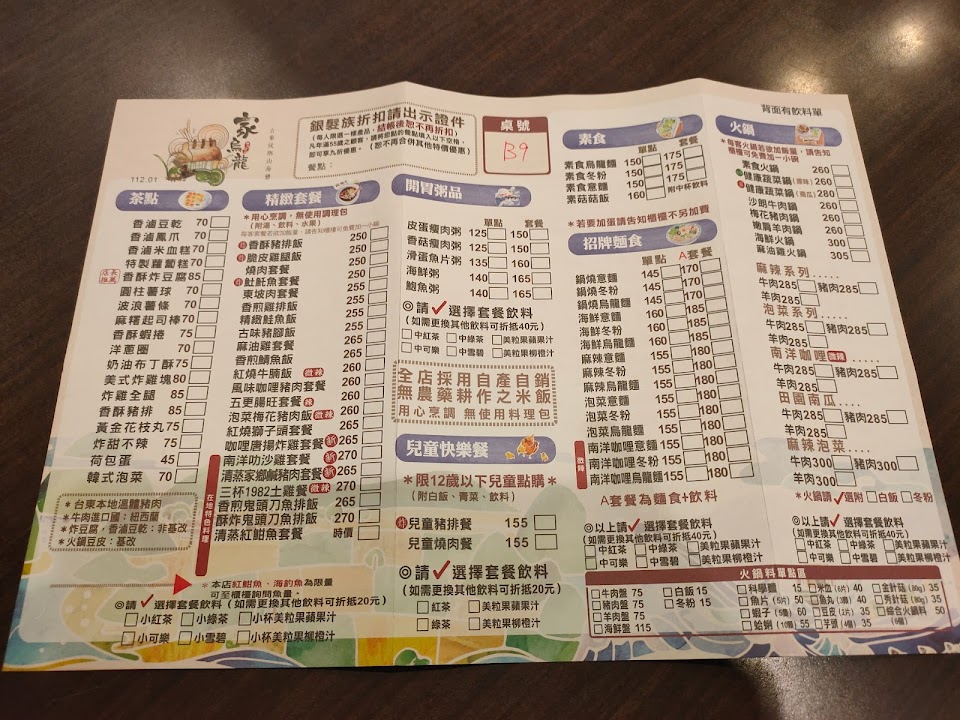 家烏龍
112.01
銀髮族折扣請出示證件
(每人限選一樣產品,結帳後恕不再折扣)
凡年滿55歲之顧客,請將您點的餐點填入以下空格,
即可享九折優惠。 (恕不再合併其他特價優惠)
餐點:
桌號
B9
背面有飲料單
茶點
香滷豆乾 70
香滷鳳爪 70
香滷米血糕 70
特製蘿蔔糕 70
店長推薦 香酥炸豆腐 85
圓柱薯球 70
波浪薯條 70
麻糬起司棒 70
香酥蝦捲 75
洋蔥圈 70
奶油布丁酥 75
美式炸雞塊 80
炸雞全腿 85
香酥豬排 85
黃金花枝丸 75
炸甜不辣 75
荷包蛋 45
韓式泡菜 75
*台東本地溫體豬肉
*牛肉進口國:紐西蘭
*炸豆腐,香滷豆乾:非基改
*火鍋豆皮:基改
精緻套餐
*用心烹調,無使用調理包
(附湯、飲料、水果)
香酥豬排飯 250
脆皮雞腿飯 250
燒肉套餐 250
魠魠魚套餐 255
東坡肉套餐 255
香煎雞排飯 255
精緻鮭魚飯 255
古味豬腳飯 255
麻油雞套餐 265
香煎鯖魚飯 265
紅燒牛腩飯 微辣 260
風味咖哩豬肉套餐 260
五更腸旺套餐 辣 260
泡菜梅花豬肉飯 微辣 260
紅燒獅子頭套餐 260
咖哩唐揚炸雞套餐 新 265
南洋叻沙雞套餐 新 270
清蒸家鄉鹹豬肉套餐 新 265
三杯1982土雞套餐 微辣 270
香煎鬼頭刀魚排飯 265
酥炸鬼頭刀魚排飯 270
清蒸紅魽魚套餐 時價
在地特色料理
*本店紅魽魚、海釣魚為限量
可至櫃檯詢問魚量。
◎請✓選擇套餐飲料(如需更換其他飲料可折抵20元)
□小紅茶 □小綠茶 □小杯美粒果蘋果汁
□小可樂 □小雪碧 □小杯美粒果柳橙汁
開胃粥品
單點 套餐
皮蛋瘦肉粥 125 150
香菇瘦肉粥 125 150
滑蛋魚片粥 135 160
海鮮粥 140 165
鮑魚粥 140 165
◎請✓選擇套餐飲料
(如需更換其他飲料可折抵40元)
□中紅茶 □中綠茶 □美粒果蘋果汁
□中可樂 □中雪碧 □美粒果柳橙汁
全店採用自產自銷
無農藥耕作之米飯
用心烹調 無使用料理包
兒童快樂餐
*限12歲以下兒童點購*
(附白飯、青菜、飲料)
兒童豬排餐 155
兒童燒肉餐 155
◎請✓選擇套餐飲料
(如需更換其他飲料可折抵20元)
□紅茶 □美粒果蘋果汁
□綠茶 □美粒果柳橙汁
素食
單點 套餐
素食烏龍麵 150 175
素食冬粉 150 175
素食意麵 150 175
素菇菇飯 160 附中杯飲料
*若要加蛋請告知櫃檯不另加費
招牌麵食
單點 A套餐
鍋燒意麵 145 170
鍋燒冬粉 145 170
鍋燒烏龍麵 145 170
海鮮意麵 160 185
海鮮冬粉 160 185
海鮮烏龍麵 160 185
麻辣意麵 155 180
麻辣冬粉 155 180
麻辣烏龍麵 155 180
泡菜意麵 155 180
泡菜冬粉 155 180
泡菜烏龍麵 155 180
南洋咖哩意麵 155 180
南洋咖哩冬粉 155 180
南洋咖哩烏龍麵 155 180
微辣
A套餐為麵食+飲料
◎以上請✓選擇套餐飲料
(如需更換其他飲料可折抵40元)
□中紅茶 □中綠茶 □美粒果蘋果汁
□中可樂 □中雪碧 □美粒果柳橙汁
火鍋
*每客火鍋若欲加飯量,請告知
櫃檯可免費加一小碗
素食火鍋 260
健康蔬菜鍋(原味) 260
健康蔬菜鍋(南瓜) 280
沙朗牛肉鍋 260
梅花豬肉鍋 260
嫩肩羊肉鍋 260
海鮮火鍋 300
麻油雞火鍋 305
麻辣系列.....
牛肉285 豬肉285
羊肉285
泡菜系列.....
牛肉285 豬肉285
羊肉285
南洋咖哩 微辣.....
牛肉285 豬肉285
羊肉285
田園南瓜.....
牛肉285 豬肉285
羊肉285
麻辣泡菜....
牛肉300 豬肉300
羊肉300
*火鍋請✓選附□白飯□冬粉
◎以上請✓選擇套餐飲料
(如需更換其他飲料可折抵40元)
□中紅茶 □中綠茶 □美粒果蘋果汁
□中可樂 □中雪碧 □美粒果柳橙汁
火鍋料單點區
□牛肉盤 75 □白飯 15 □科學麵 15 □米血(6片) 40 □金針菇(80g) 35
□豬肉盤 75 □冬粉 15 □魚片(5片) 50 □魚丸(3顆) 40 □秀針菇(80g) 35
□羊肉盤 75 □蝦子(6尾) 60 □豆皮(2片) 35 □綜合火鍋料 50
□海鮮盤 115 □蛤蜊(10顆) 55 □芋頭(4顆) 35 (6顆)